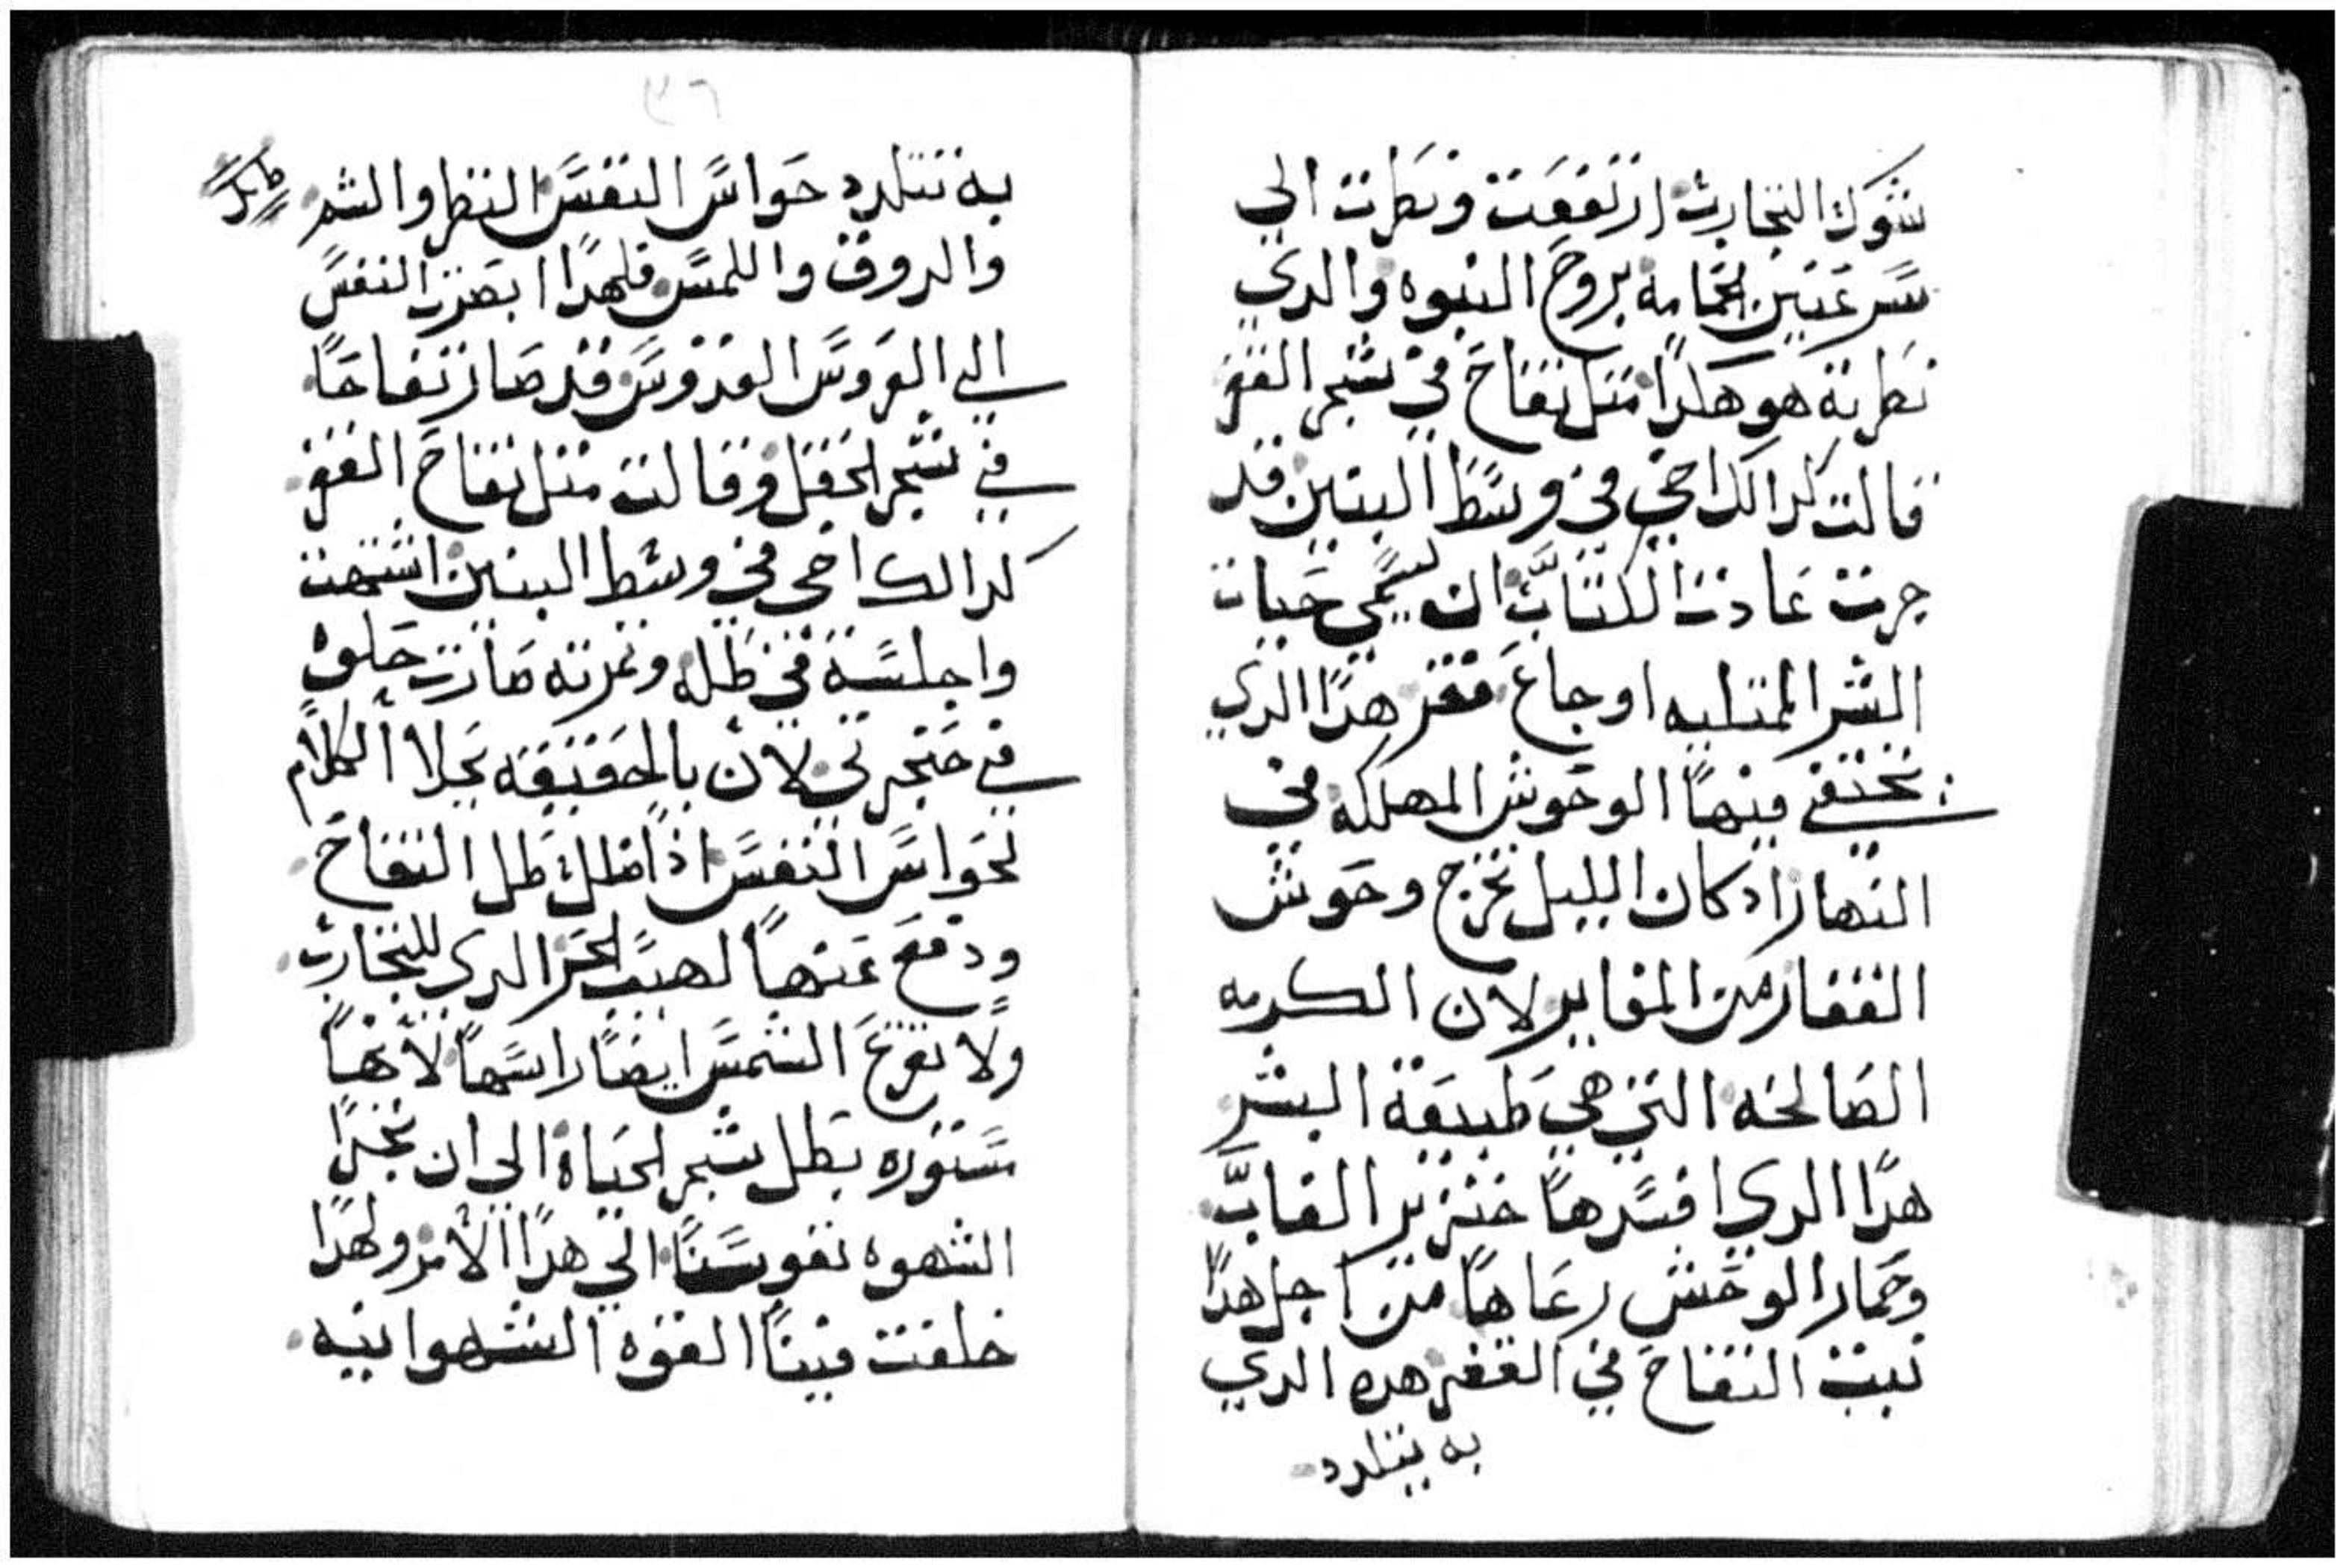 شوك التجارب ارتفعت ونظرت الي
سر عنين الحمامه بروح النبوه والدي
نظرته هو هكدا متل تفاح في شجر القفر
قالت كدالك اخي في وسط البنين قد
جرت عادت الكتاب ان يسمي حيات
البشر الممتليه اوجاع قفر هدا الدي
تختفي فيها الوحوش المهلكه في
النهار ادكان الليل تخرج وحوش
القفار من المقاير لان الكرمه
الصالحه التي هي طبيعة البشر
هدا الدي افسدها خنزير الغاب
وحمار الوحش رعاها من اجل هدا
نبت التفاح في القفر هده الدي
به يتلدد
٢٦
به تتلدد حواس النفس النظر والشم
والدوق واللمس فلهدا ابصرت النفس
الي العروس القدوس قد صار تفاحًا
في شجر الحقل وقالت متل تفاح القفر
كدالك اخي في وسط البنين اشتهت
واجلسة في ظله وتمرته صارت حلوه
في حنجرتي لان بالحقيقه يحلا الكلام
لحواس النفس اذا ظلل ظل التفاح
ودفع عنها لهيب الحر الدي للتجارب
ولا تقرع الشمس ايضًا راسها لانها
مستوره بظل شجر الحياة الي ان تجدا
الشهوه نفوسنا الي هدا الامر ولهدا
خلقت فينا القوه الشهوانيه